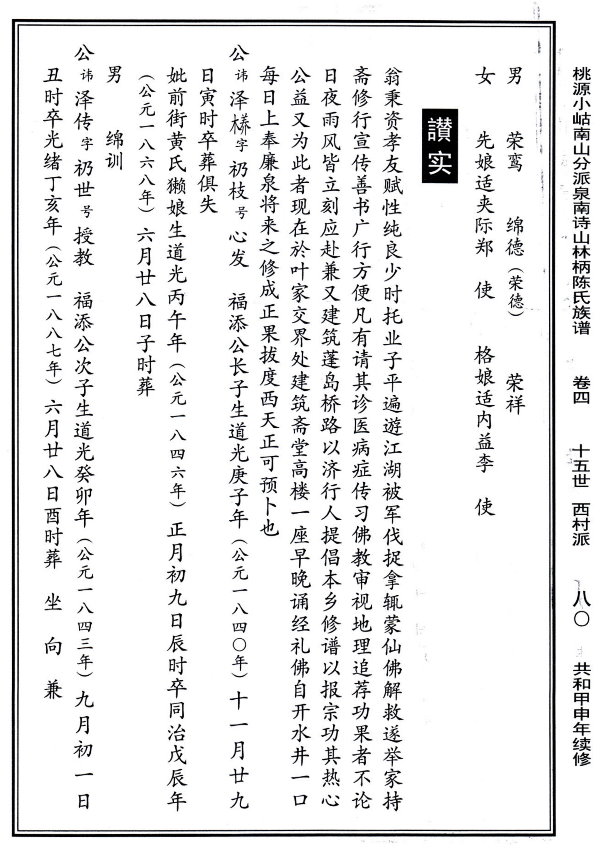 桃源小岵南山分派泉南诗山林柄陈氏族谱 卷四 十五世 西村派 八〇 共和甲申年续修
男 荣鸾 绵德（荣德） 荣祥
女 先娘适夹际郑 使 格娘适内益李 使
讃实
翁秉资孝友赋性纯良少时托业子平遍遊江湖被军伐捉拿辄蒙仙佛解救遂举家持
斋修行宣传善书广行方便凡有请其诊医病症传习佛教审视地理追荐功果者不论
日夜雨风皆立刻应赴兼又建筑蓬岛桥路以济行人提倡本乡修谱以报宗功其热心
公益又为此者现在於叶家交界处建筑斋堂高楼一座早晚诵经礼佛自开水井一口
每日上奉廉泉将来之修成正果拔度西天正可预卜也
公讳泽字礽枝号心发 福添公长子生道光庚子年（公元一八四〇年）十一月廿九
日寅时卒葬俱失
妣前街黄氏獭娘生道光丙午年（公元一八四六年）正月初九日辰时卒同治戊辰年
（公元一八六八年）六月廿八日子时葬
男 绵训
公讳泽传字礽世号授教 福添公次子生道光癸卯年（公元一八四三年）九月初一日
丑时卒光绪丁亥年（公元一八八七年）六月廿八日酉时葬 坐 向 兼